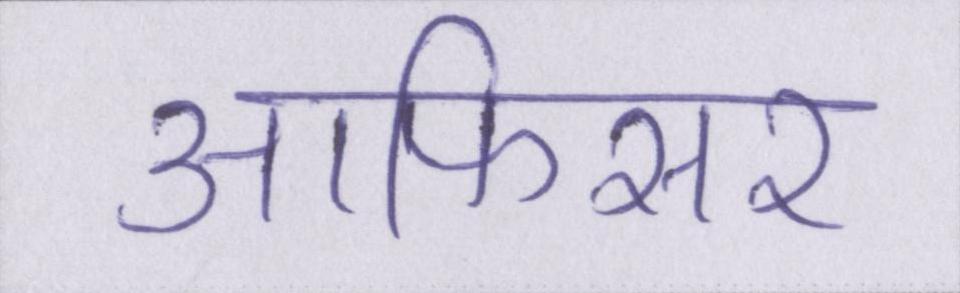 आफिसर